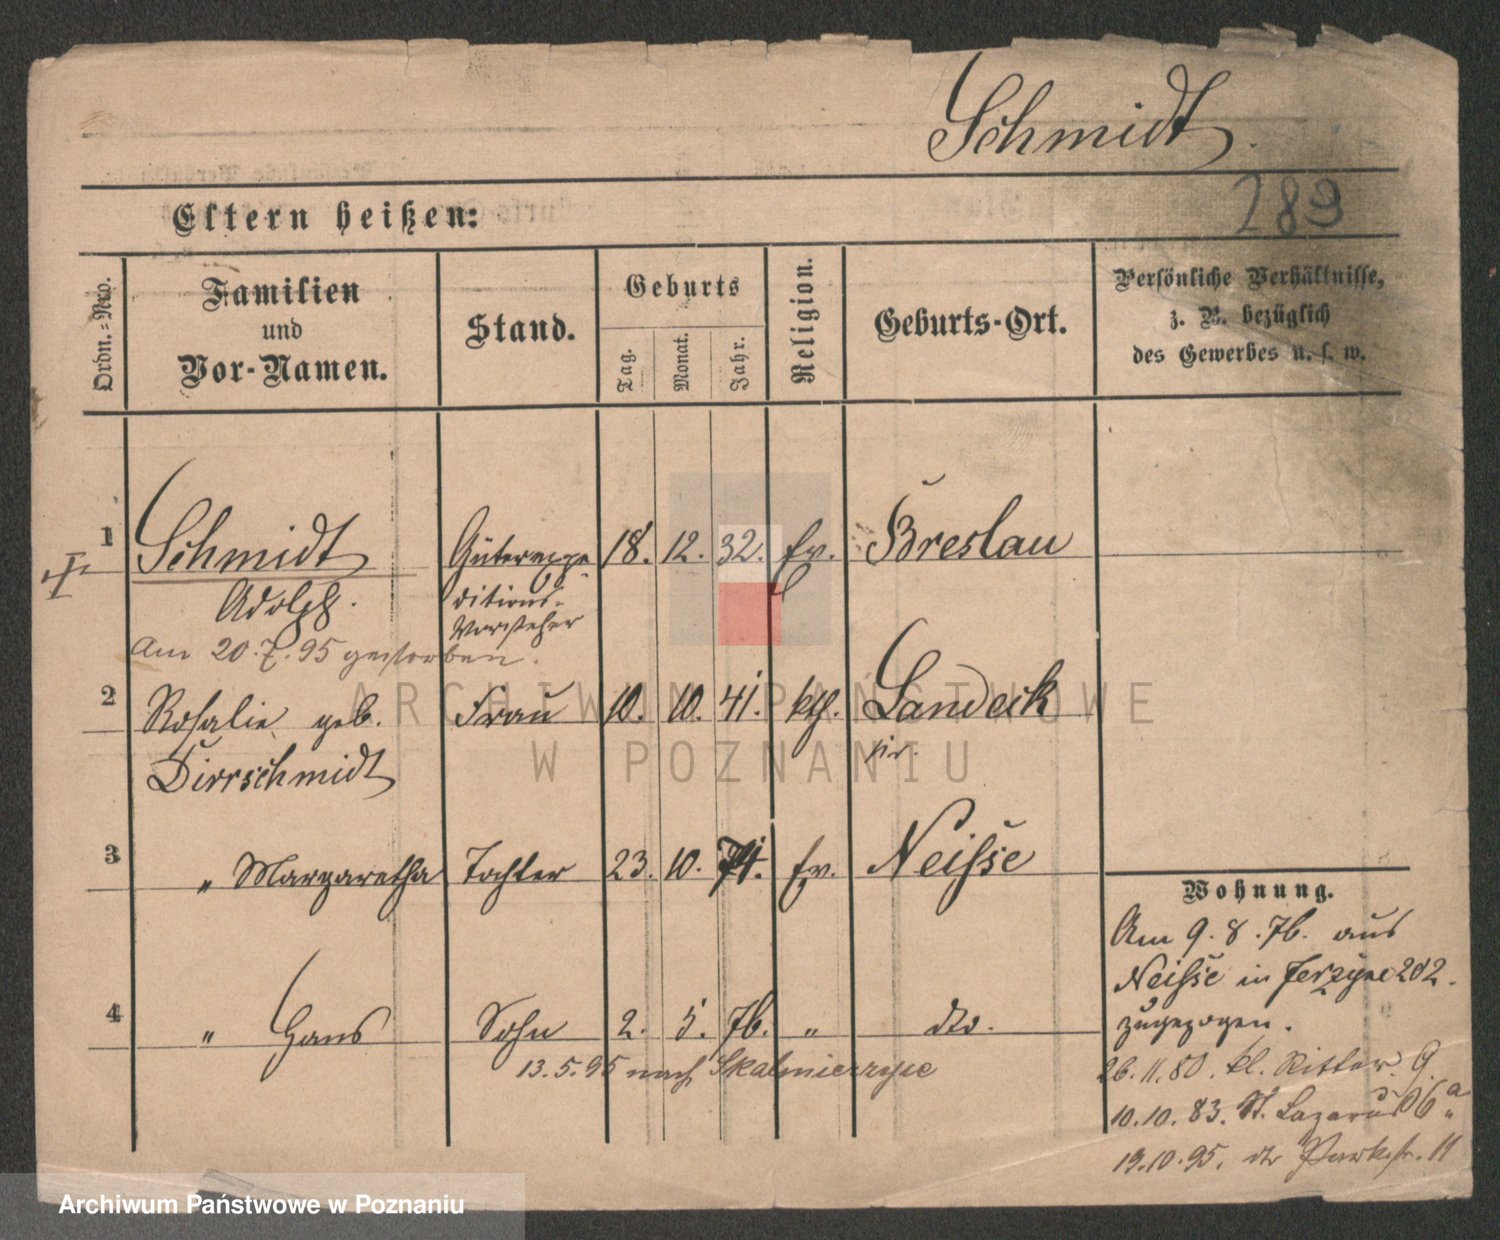 Schmidt.
289
Eltern heißen:
Ordn.-Nro.
Familien
und
Vor-Namen.
Stand.
Geburts
Tag.
Monat.
Jahr.
Religion.
Geburts-Ort.
Persönliche Verhältnisse,
z. B. bezüglich
des Gewerbes u. s. w.
1 Schmidt Güterexpe 18. 12. 32. Ev. Breslau
Adolph. ditions-
Vorsteher
Am 20.7.95 gestorben.
2 Rosalie geb. Frau 10. 10. 41. kth. Landeck
Dirrschmidt
3 " Margaretha Tochter 23. 10. 74. Ev. Neisse
4 " Hans Sohn 2. 5. 76. " dto.
13.5.95 nach Skalmierzyce
Wohnung.
Am 9.8.76. aus
Neisse in Jerzyce 202.
zugezogen.
26.11.80. kl. Ritter. 9.
10.10.83. St. Lazarus 6a
19.10.95. Parkstr. 11
ARCHIWUM PAŃSTWOWE
W POZNANIU
Archiwum Państwowe w Poznaniu